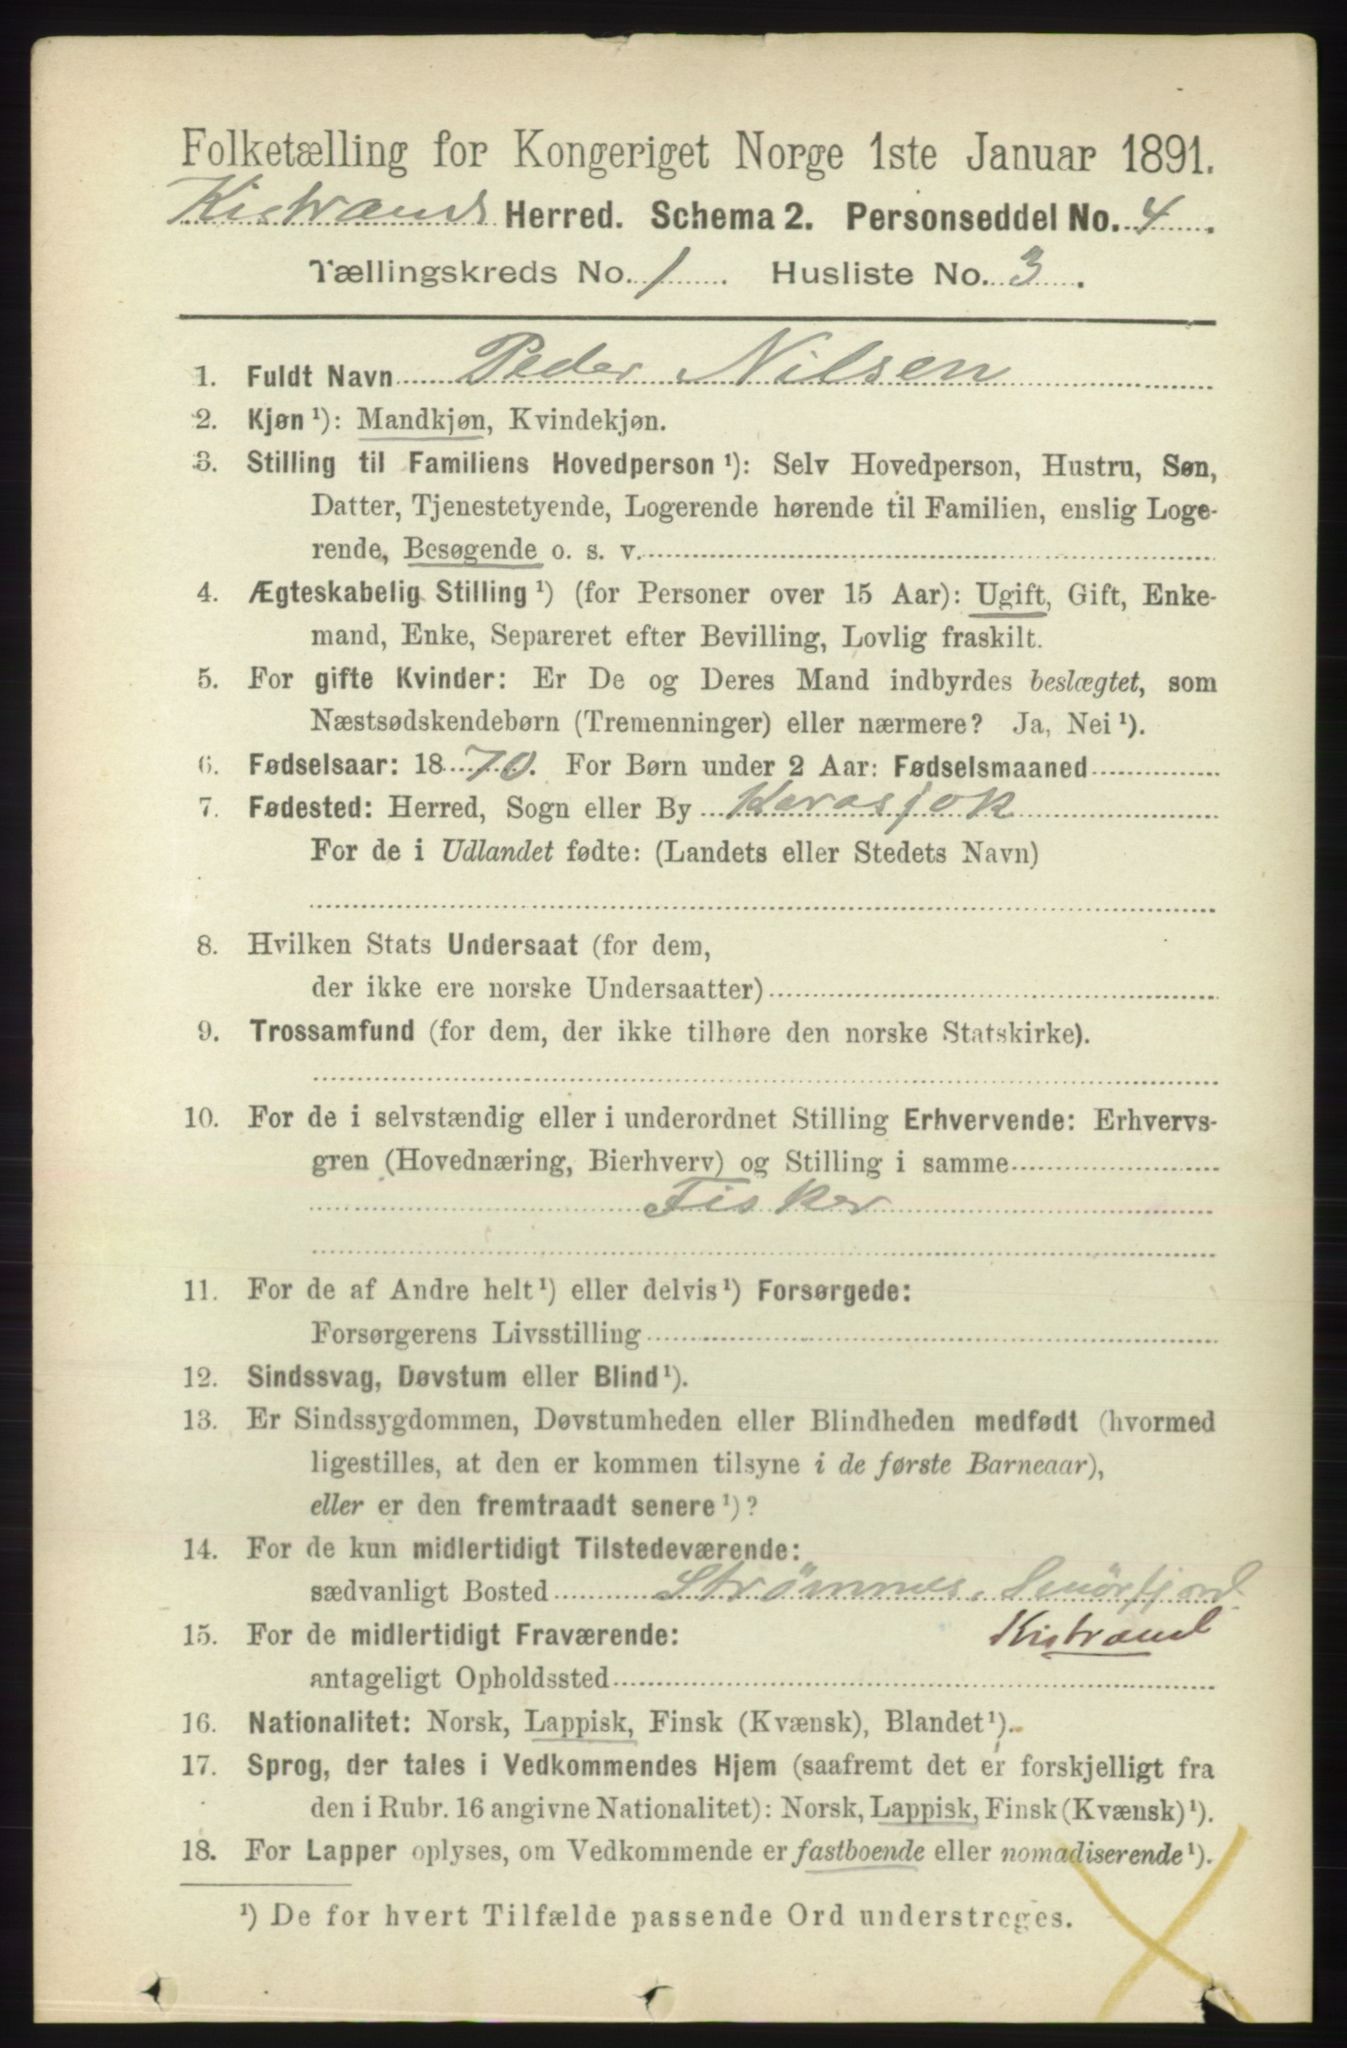 Folketælling for Kongeriget Norge 1ste Januar 1891.
Kistrand Herred. Schema 2. Personseddel No. 4.
Tællingskreds No. 1. Husliste No. 3.
1. Fuldt Navn Peder Nilsen
2. Kjøn ¹): Mandkjøn, Kvindekjøn.
3. Stilling til Familiens Hovedperson ¹): Selv Hovedperson, Hustru, Søn,
Datter, Tjenestetyende, Logerende hørende til Familien, enslig Loge-
rende, Besøgende o. s. v.
4. Ægteskabelig Stilling ¹) (for Personer over 15 Aar): Ugift, Gift, Enke-
mand, Enke, Separeret efter Bevilling, Lovlig fraskilt.
5. For gifte Kvinder: Er De og Deres Mand indbyrdes beslægtet, som
Næstsødskendebørn (Tremenninger) eller nærmere? Ja, Nei ¹).
6. Fødselsaar: 1870. For Børn under 2 Aar: Fødselsmaaned
7. Fødested: Herred, Sogn eller By Karasjok
For de i Udlandet fødte: (Landets eller Stedets Navn)
8. Hvilken Stats Undersaat (for dem,
der ikke ere norske Undersaatter)
9. Trossamfund (for dem, der ikke tilhøre den norske Statskirke).
10. For de i selvstændig eller i underordnet Stilling Erhvervende: Erhvervs-
gren (Hovednæring, Bierhverv) og Stilling i samme
Fisker
11. For de af Andre helt ¹) eller delvis ¹) Forsørgede:
Forsørgerens Livsstilling
12. Sindssvag, Døvstum eller Blind ¹).
13. Er Sindssygdommen, Døvstumheden eller Blindheden medfødt (hvormed
ligestilles, at den er kommen tilsyne i de første Barneaar),
eller er den fremtraadt senere ¹)?
14. For de kun midlertidigt Tilstedeværende:
sædvanligt Bosted Strømnes, Smörfjord.
15. For de midlertidigt Fraværende: Kistrand
antageligt Opholdssted
16. Nationalitet: Norsk, Lappisk, Finsk (Kvænsk), Blandet ¹).
17. Sprog, der tales i Vedkommendes Hjem (saafremt det er forskjelligt fra
den i Rubr. 16 angivne Nationalitet): Norsk, Lappisk, Finsk (Kvænsk) ¹).
18. For Lapper oplyses, om Vedkommende er fastboende eller nomadiserende ¹).
¹) De for hvert Tilfælde passende Ord understreges.